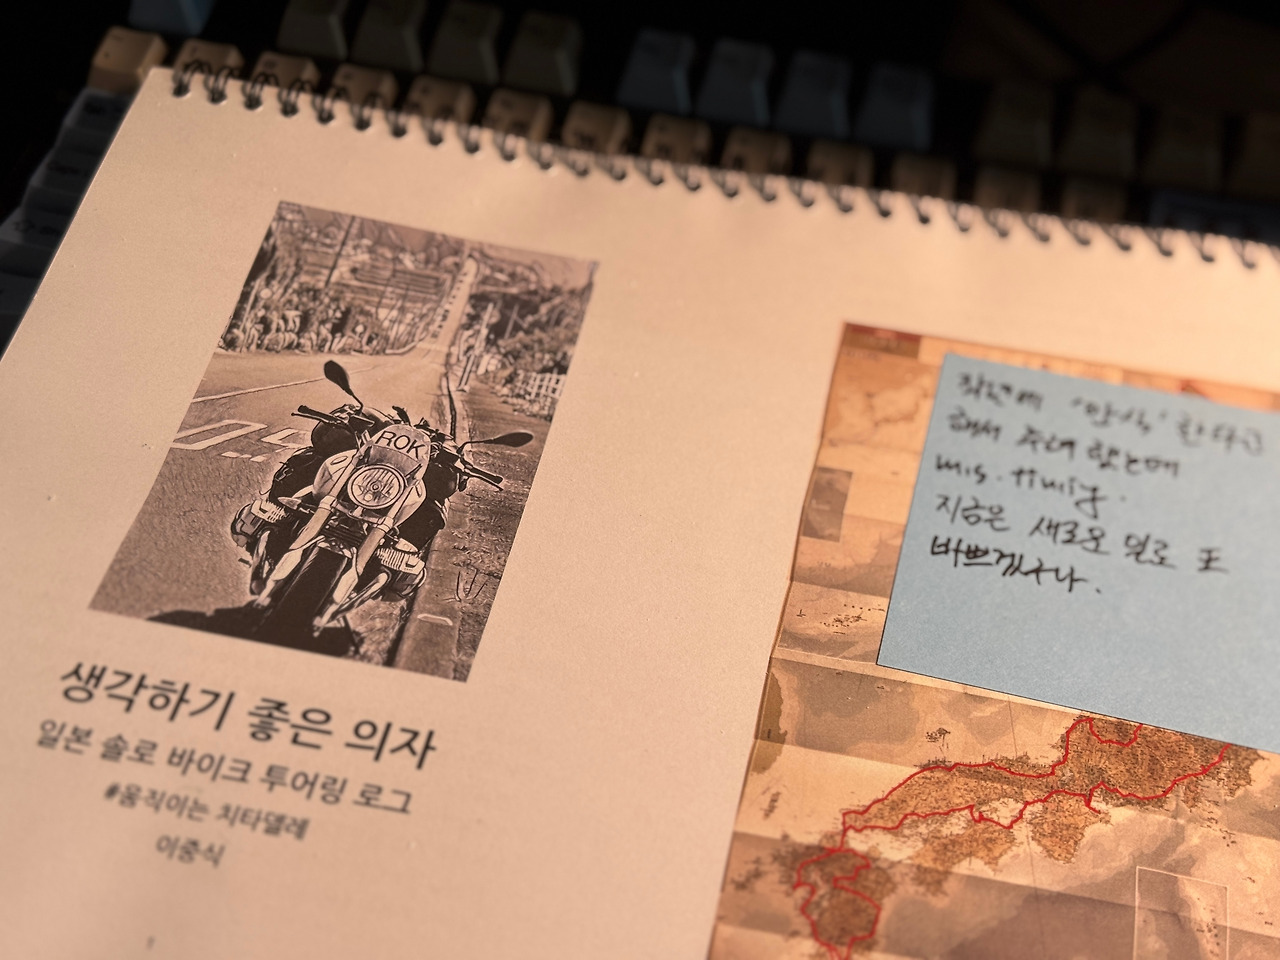 ROK
생각하기 좋은 의자
일본 솔로 바이크 투어링 로그
#움직이는 치타델레
이중식
작년에 '안식' 한다고
해서 주려 했는데
mis. timing.
지금은 새로운 일로 또
바쁘겠구나.